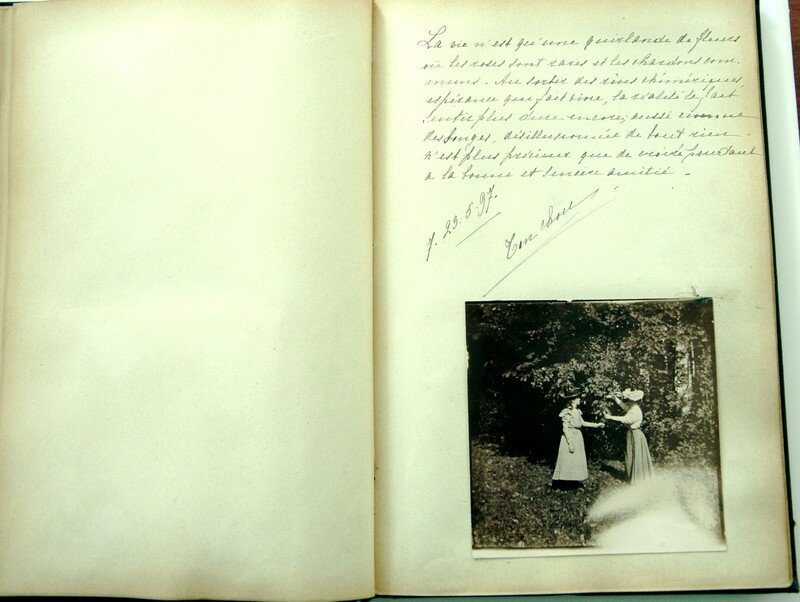 La vie n'est qu'une guirlande de fleurs
où les roses sont rares et les chardons com
muns. Au sortir des rives chimériques
espérance qui fait vivre, la réalité se fait
sentir plus dure encore; aussi comme
des songes, désillusionnée de tout rien
n'est plus précieux que de croire pourtant
a la bonne et sincère amitié.
7. 23.5.97.